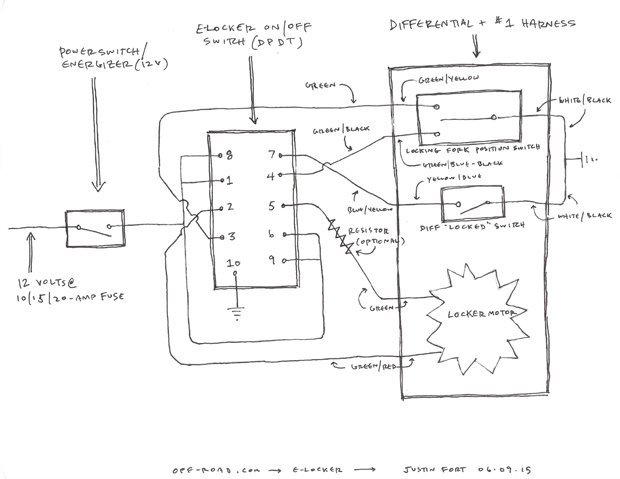 E-LOCKER ON/OFF
SWITCH (DPDT)
DIFFERENTIAL + #1 HARNESS
POWER SWITCH/
ENERGIZER (12V)
GREEN
GREEN/YELLOW
WHITE/BLACK
GREEN/BLACK
LOCKING FORK POSITION SWITCH
GREEN/BLUE-BLACK
YELLOW/BLUE
8
7
1
4
2
5
3
6
10
9
BLUE/YELLOW
DIFF "LOCKED" SWITCH
WHITE/BLACK
RESISTOR
(OPTIONAL)
12 VOLTS @
10/15/20-AMP FUSE
GREEN
LOCKER MOTOR
GREEN/RED
OFF-ROAD.COM → E-LOCKER → JUSTIN FORT 06.09.15